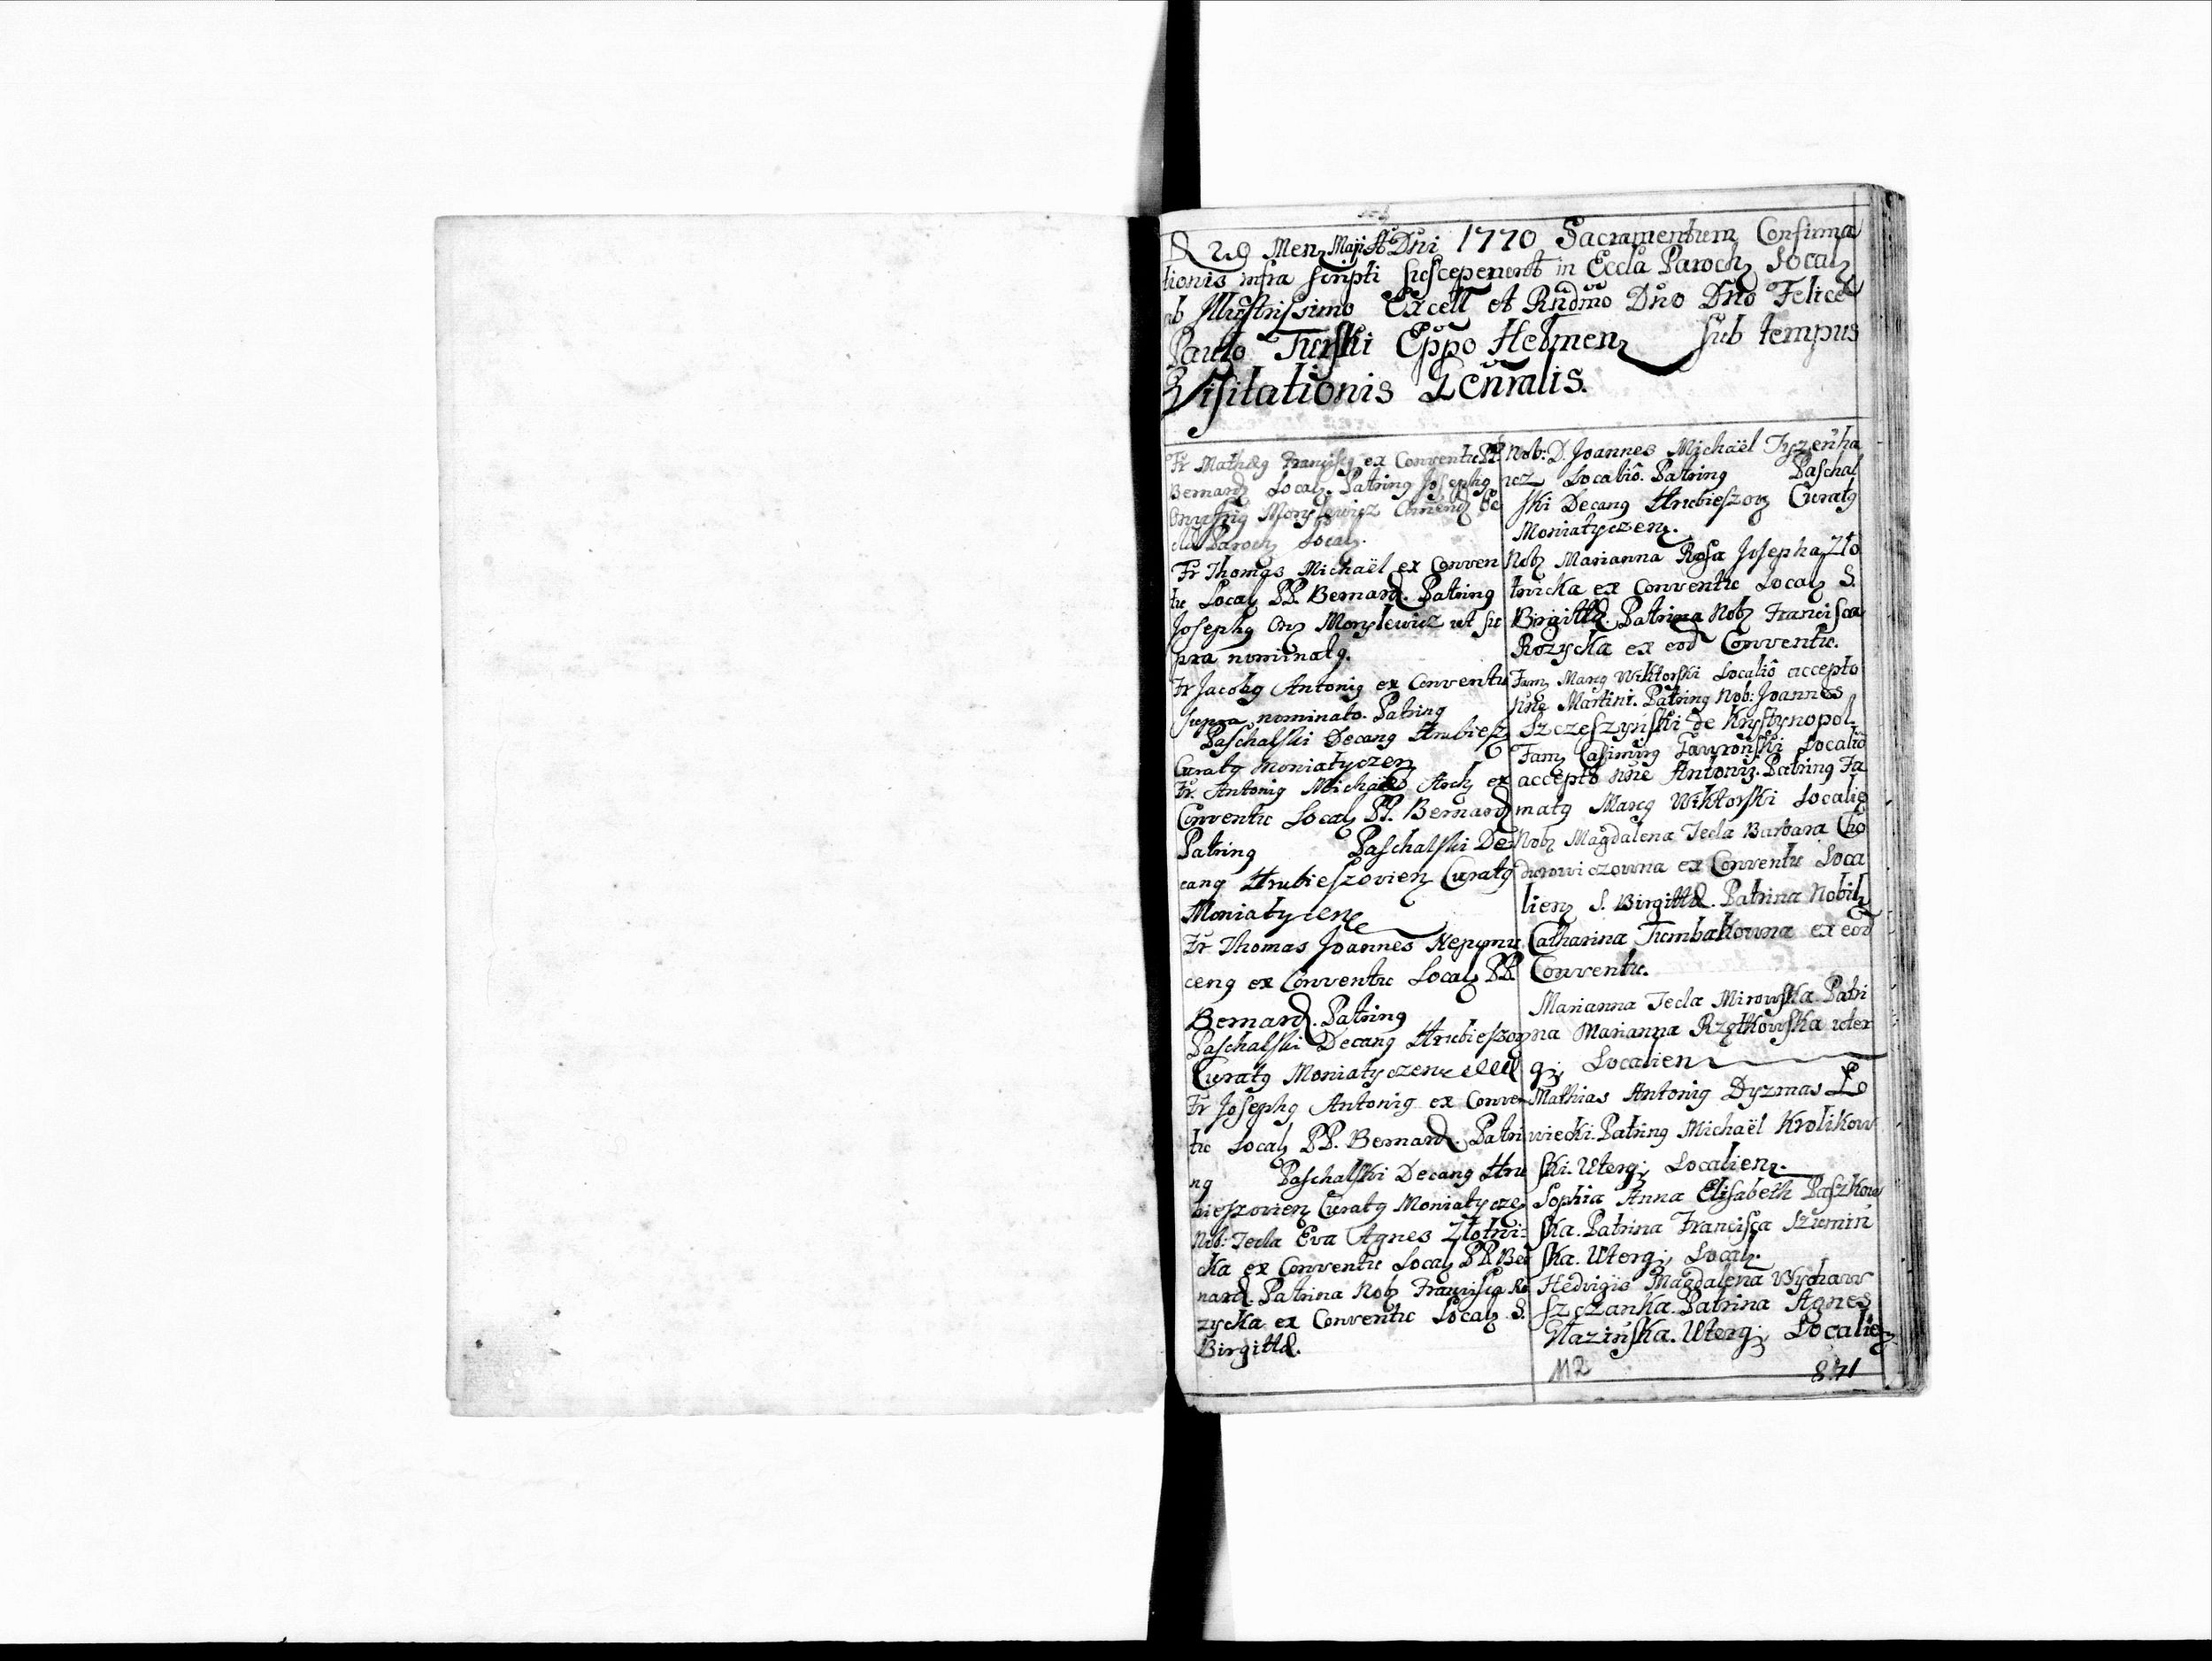 D 29 Menz Maji Aº Dni 1770 Sacramentum Confirma
tionis infra scripti susceperunt in Eccla Paroch Local
ab Illustrissimo Excell et Rndmo Dno Dno Felice
Paulo Turski Eppo Helmenz sub tempus
Visitationis Genralis.
Fr Mathæg Francisg ex Conventu PP
Bernard Local. Patring Josephg
Onufrig Monslewicz Comend Ec
cla Paroch Local.
Fr Thomas Michaël ex Conven
tu Local PP. Bernard. Patring
Josephg Onz Monslewicz ut su
pra nominatg.
Fr Jacobg Antonig ex Conventu
supra nominato. Patring
Paschalski Decang Hrubiesz
Curatg Moniatyczen
Fr. Antonig Michaël Arch ex
Conventu Local PP. Bernard
Patring Paschalski De
cang Hrubieszovien Curatg
Moniatycen
Fr Thomas Joannes Nepomu
ceng ex Conventu Local PP
Bernard. Patring
Paschalski Decang Hrubieszov
Curatg Moniatyczen
Fr Josephg Antonig ex Conven
tu Local PP. Bernard. Patri
ng Paschalski Decang Hru
bieszovien Curatg Moniatycze
Nob: Tecla Eva Agnes Złotni-
cka ex Conventu Local PP. Ber
nard. Patrina Nob Francisca Ro
zycka ex Conventu Local S.
Birgittæ.
Nob: D. Joannes Michaël Tyzenha
uz Localis. Patring Paschal
ski Decang Hrubieszov Curatg
Moniatyczen.
Nob Marianna Rosa Josepha Zło
tnicka ex Conventu Local S.
Birgittæ. Patrina Nob Francisca
Rozycka ex eod Conventu.
Fam Marcg Wiktorski Localis accepto
nne Martini. Patring Nob: Joannes
Szczeszyński de Krystynopol.
Fam Casimirg Gawroński Localis
accepto nne Antonij. Patring Fa
matg Marcg Wiktorski Localis
Nob Magdalena Tecla Barbara Cho
durowiczowna ex Conventu Loca
lien S. Birgittæ. Patrina Nobil
Catharina Tumbakowna ex eod
Conventu.
Marianna Tecla Mirowska. Patri
na Marianna Rzątkowska uter
q; Localien
Mathias Antonig Dyzmas Ło
wiecki. Patring Michaël Krolikow
ski. Uterq; Localien.
Sophia Anna Elisabeth Paszkow
ska. Patrina Francisca Szumin
ska. Uterq; Local.
Hedvigis Magdalena Wychaw
szczanka. Patrina Agnes
Uterq; Localien
112
841